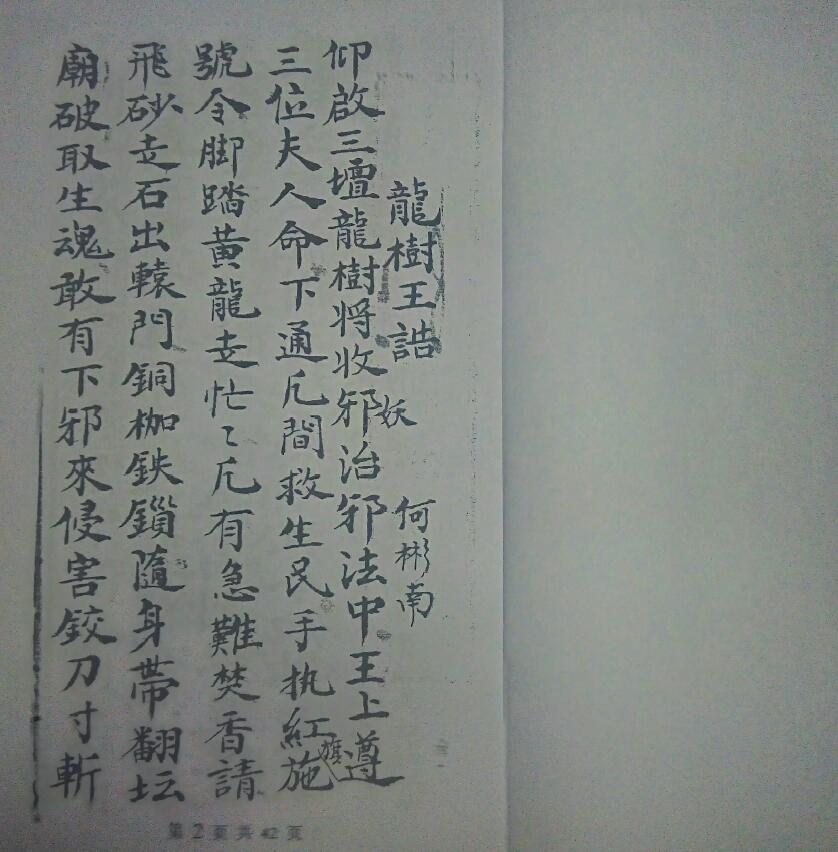 龍樹王誥 何彬南
仰啟三壇龍樹將收邪妖治邪法中王上遵
三位夫人命下通凡間救生民手执紅施旗
號令脚踏黄龍走忙〻凡有急難焚香請
飛砂走石出轅門銅枷鉄鎖隨身帶翻坛
廟破取生魂敢有下邪來侵害鉸刀寸斬
第2页共42页